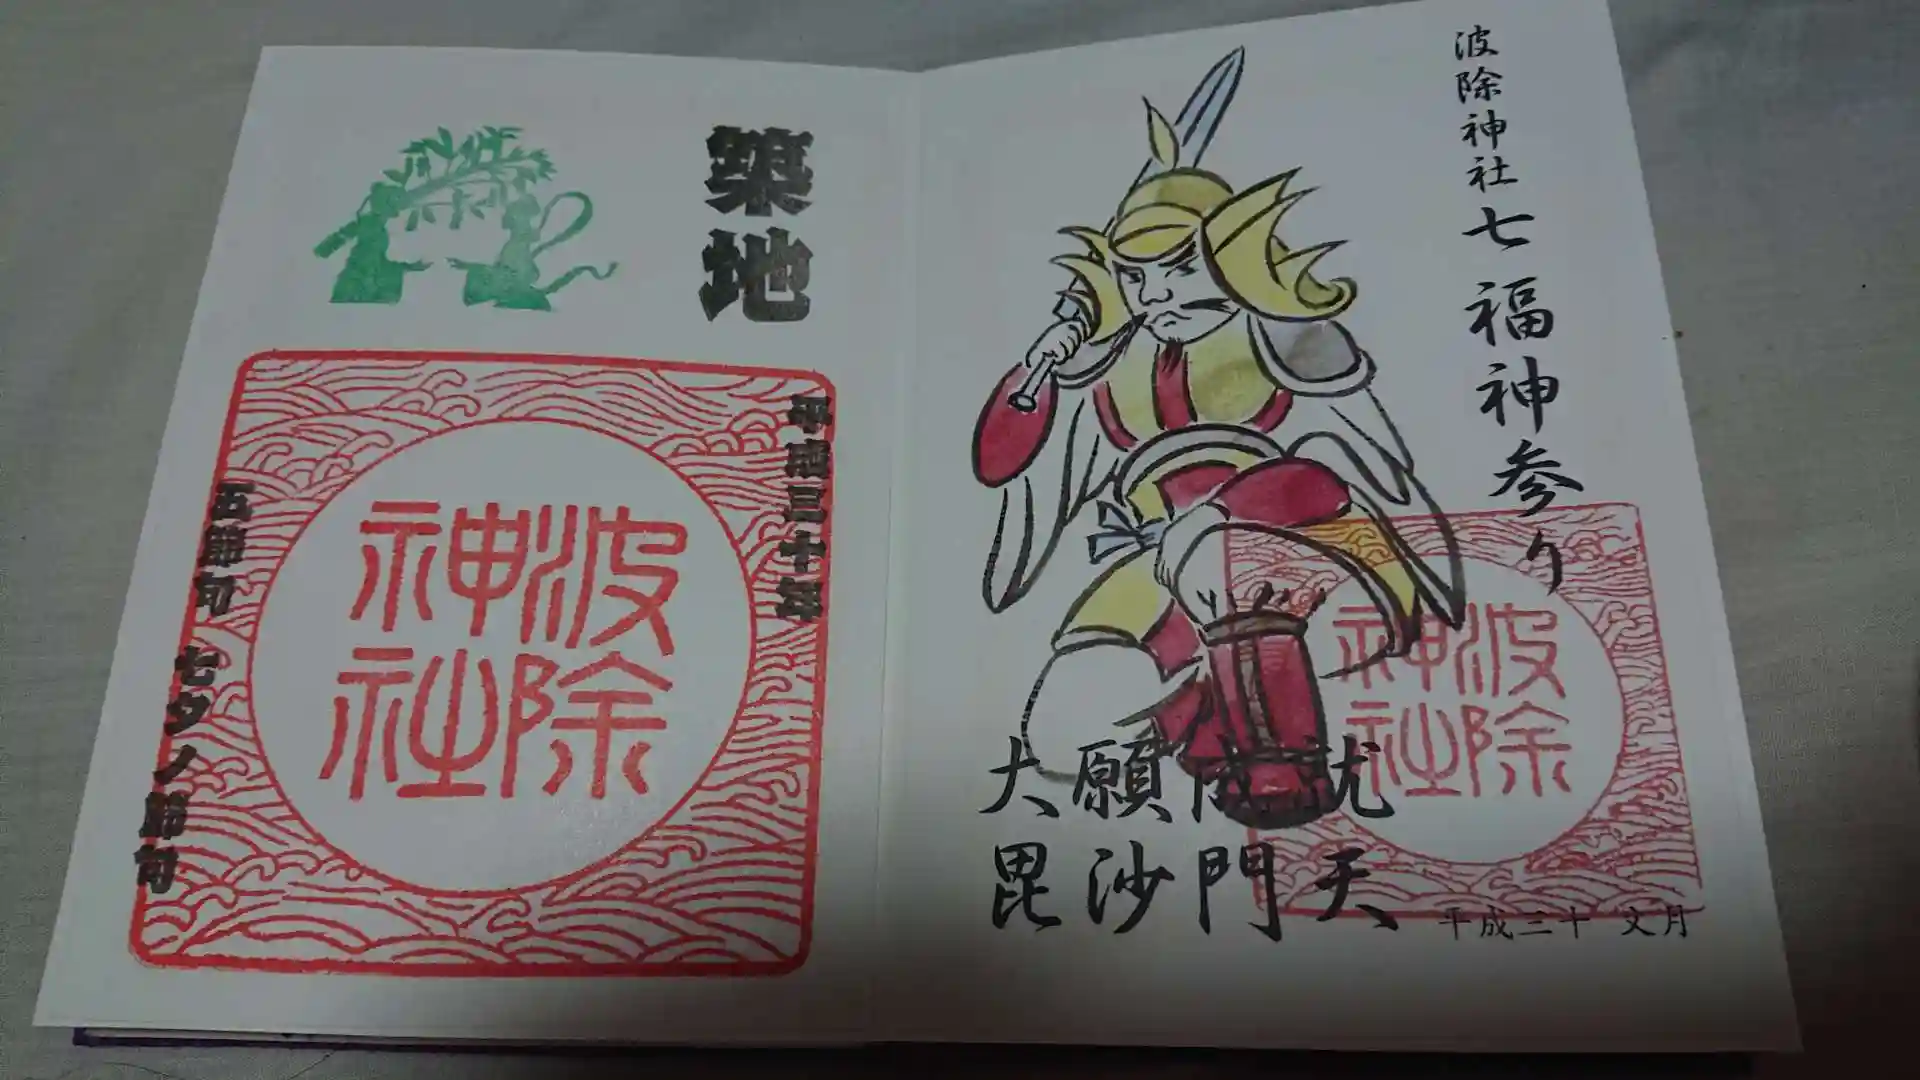 波除神社 七福神参り
大願成就
毘沙門天
波除
神社
平成三十 文月
築地
平成三十年
波除
神社
五節句 七夕ノ節句